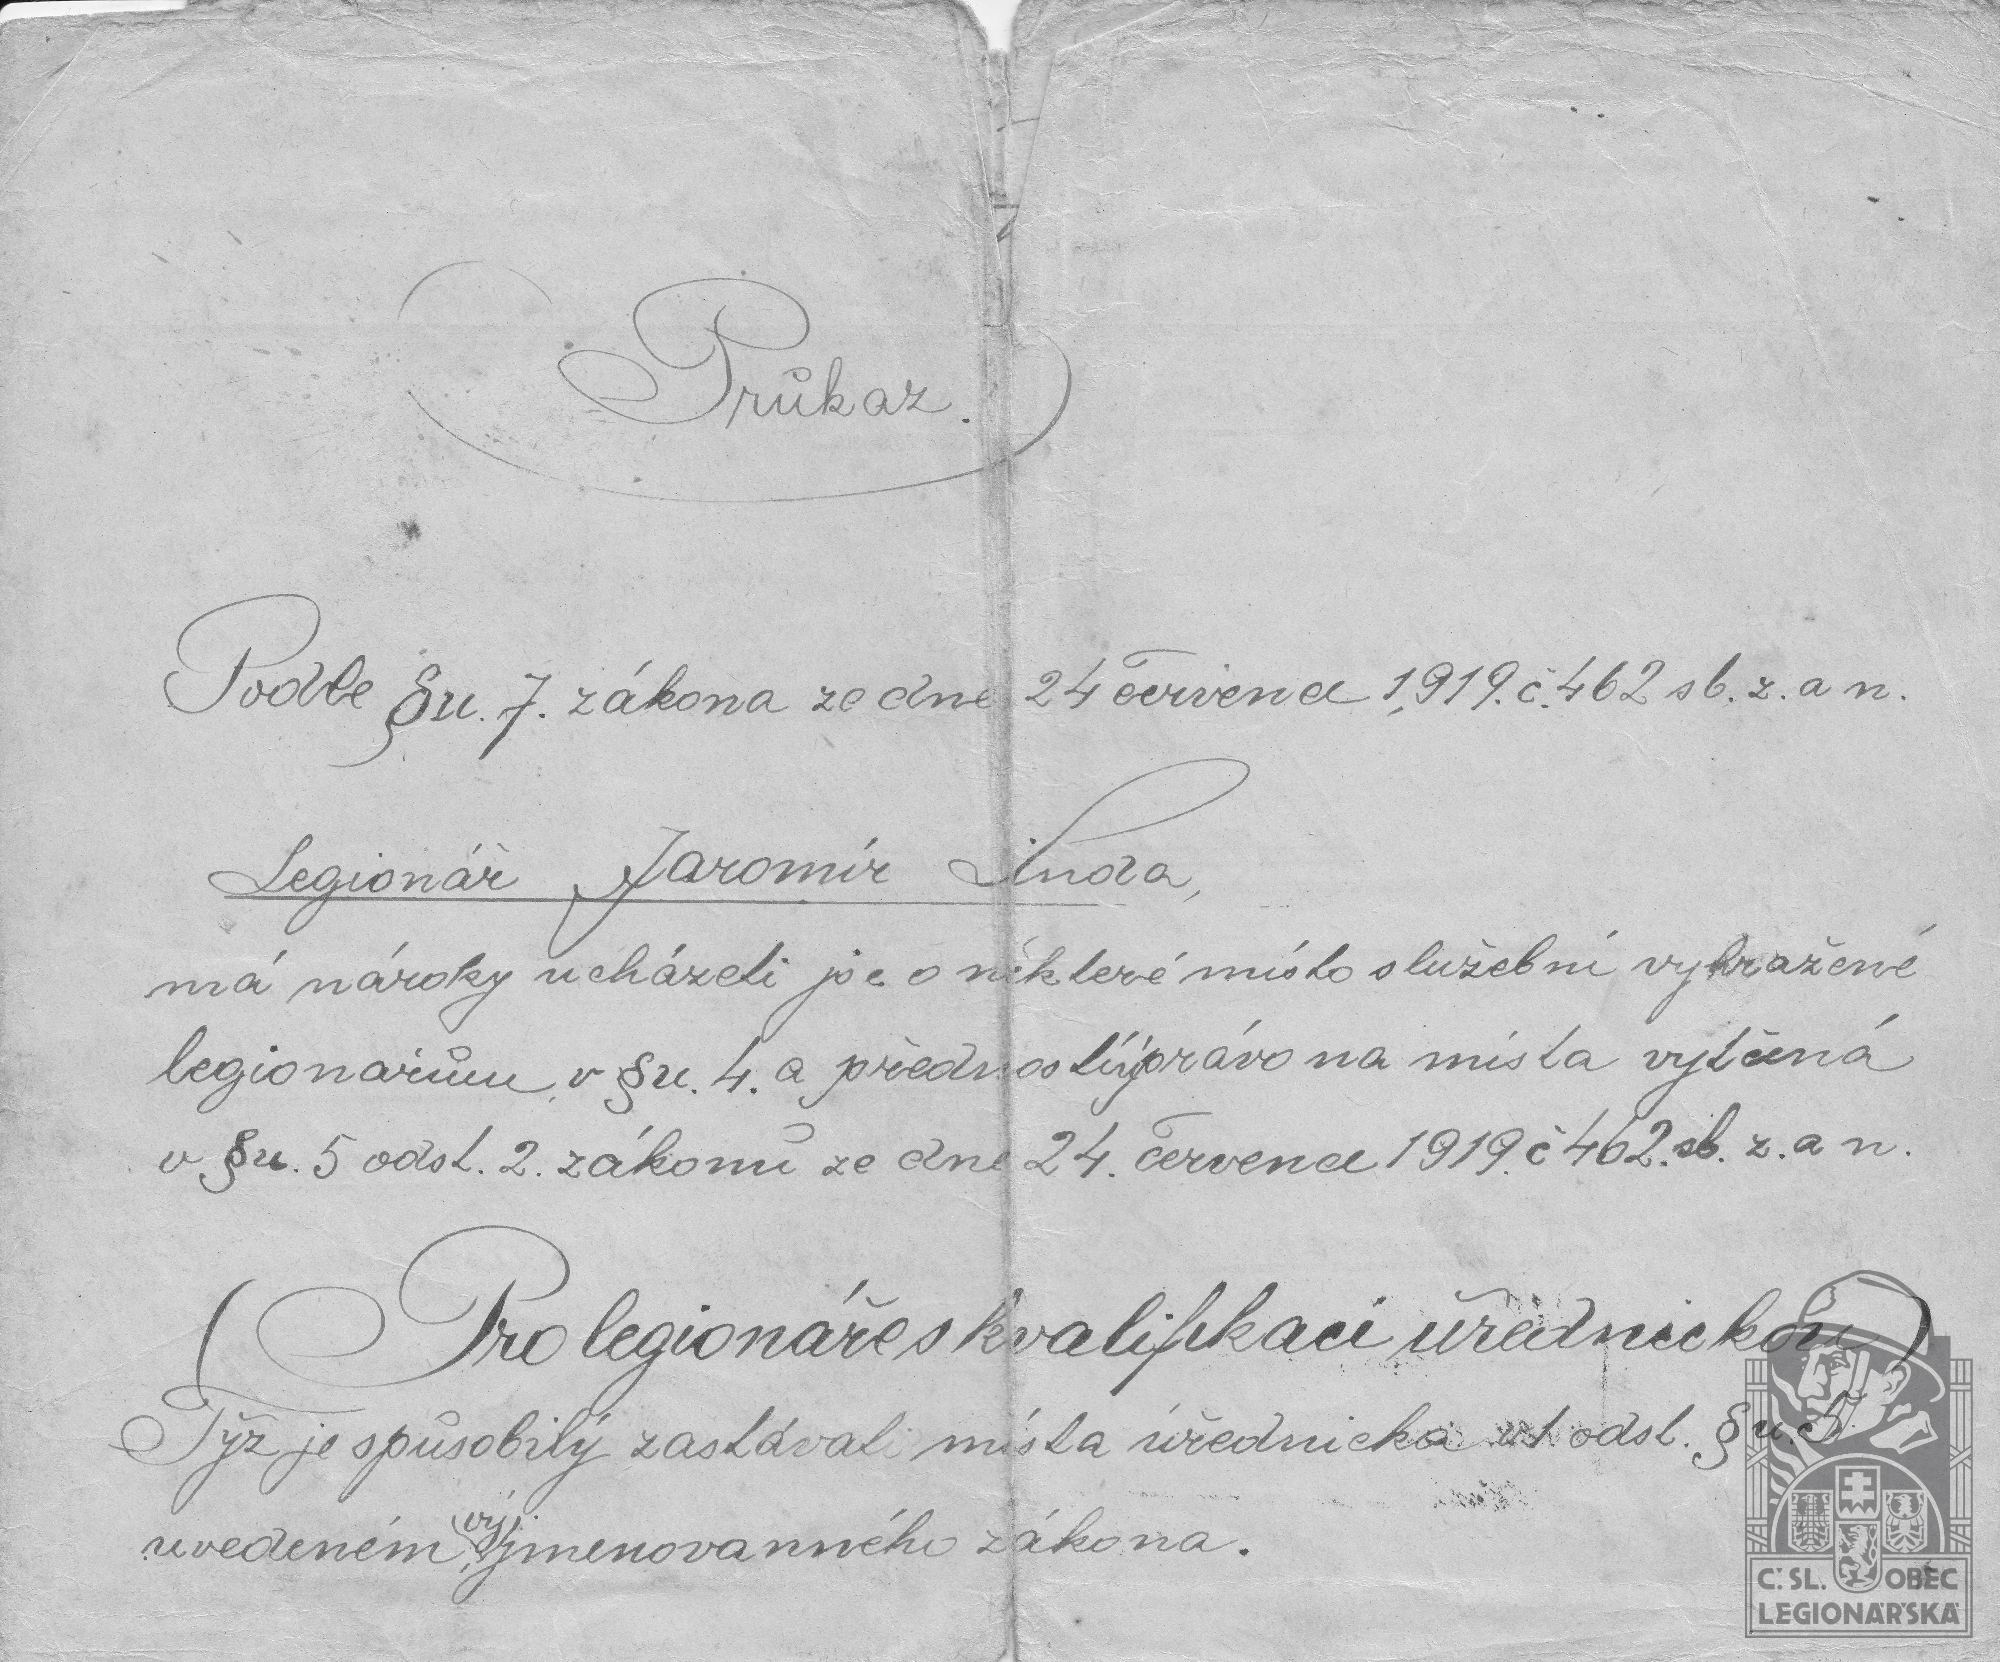 Průkaz.
Podle §u. 7. zákona ze dne 24 července 1919. č. 462 sb. z. a n.
Legionář Jaromír Linda,
má nároky ucházeti jse o některé místo služební vyhražené
legionářům v §u. 4. a přednostní právo na místa vytčená
v §u. 5 odst. 2. zákonů ze dne 24. července 1919. č 462. sb. z. a n.
(Pro legionáře s kvalifikací úřednickou)
Týž je spůsobilý zastávati místa úřednická v 1 odst. §u. 5
uvedeném výj. jmenovanného zákona.
Č. SL. OBEC
LEGIONÁŘSKÁ